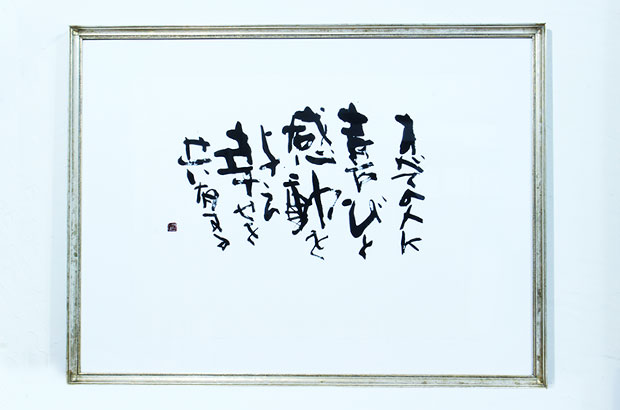 すべての人に
喜びと
感動を
与え
幸せを
共有する